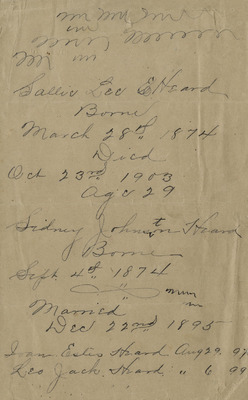 Sallie Lee E Heard
Borne
March 28th 1874
Died
Oct 23rd 1903
Age 29
Sidney Johnston Heard
Borne
Sept 4th 1874
Married
Dec 22nd 1895
Ivan Estes Heard Aug 29. 97
Leo Jack Heard " 6 99